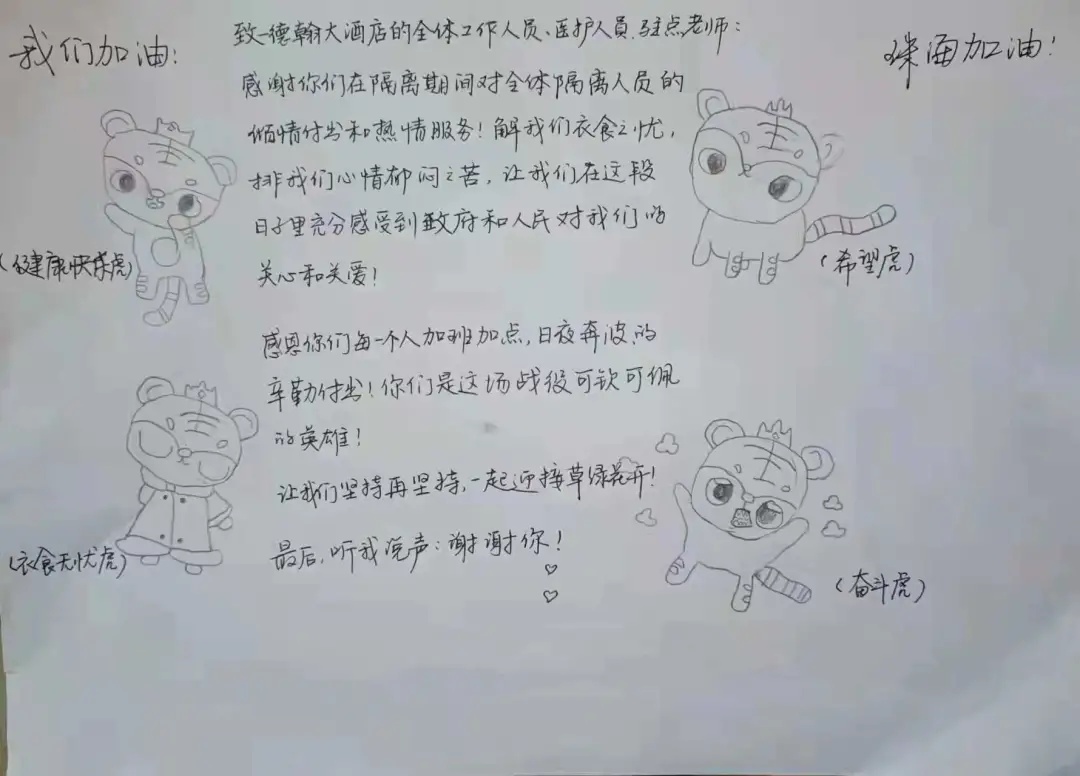 我们加油！
珠海加油！
致一德翰大酒店的全体工作人员、医护人员、驻点老师：
感谢你们在隔离期间对全体隔离人员的
倾情付出和热情服务！解我们衣食之忧，
排我们心情郁闷之苦，让我们在这段
日子里充分感受到政府和人民对我们的
关心和关爱！
（健康快乐虎）
（希望虎）
感恩你们每一个人加班加点，日夜奔波的
辛勤付出！你们是这场战役可钦可佩
的英雄！
让我们坚持再坚持，一起迎接草绿花开！
最后，听我说声：谢谢你！
（衣食无忧虎）
（奋斗虎）